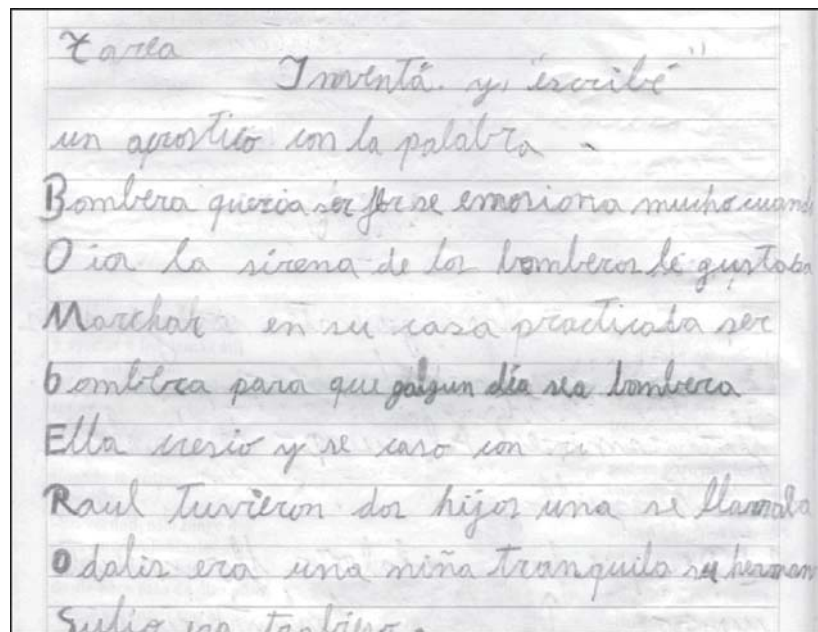 Tarea
Inventá. y, "escribé"
un acrostico con la palabra
Bombera queria ser flor se emosiona mucho cuand
Oia la sirena de los bomberos le gustaba
Marchar en su casa practicaba ser
bombera para que algun día sea bombera
Ella cresio y se caso con
Raul tuvieron dos hijos una se llamaba
Odalis era una niña tranquila su herman
Sulio era